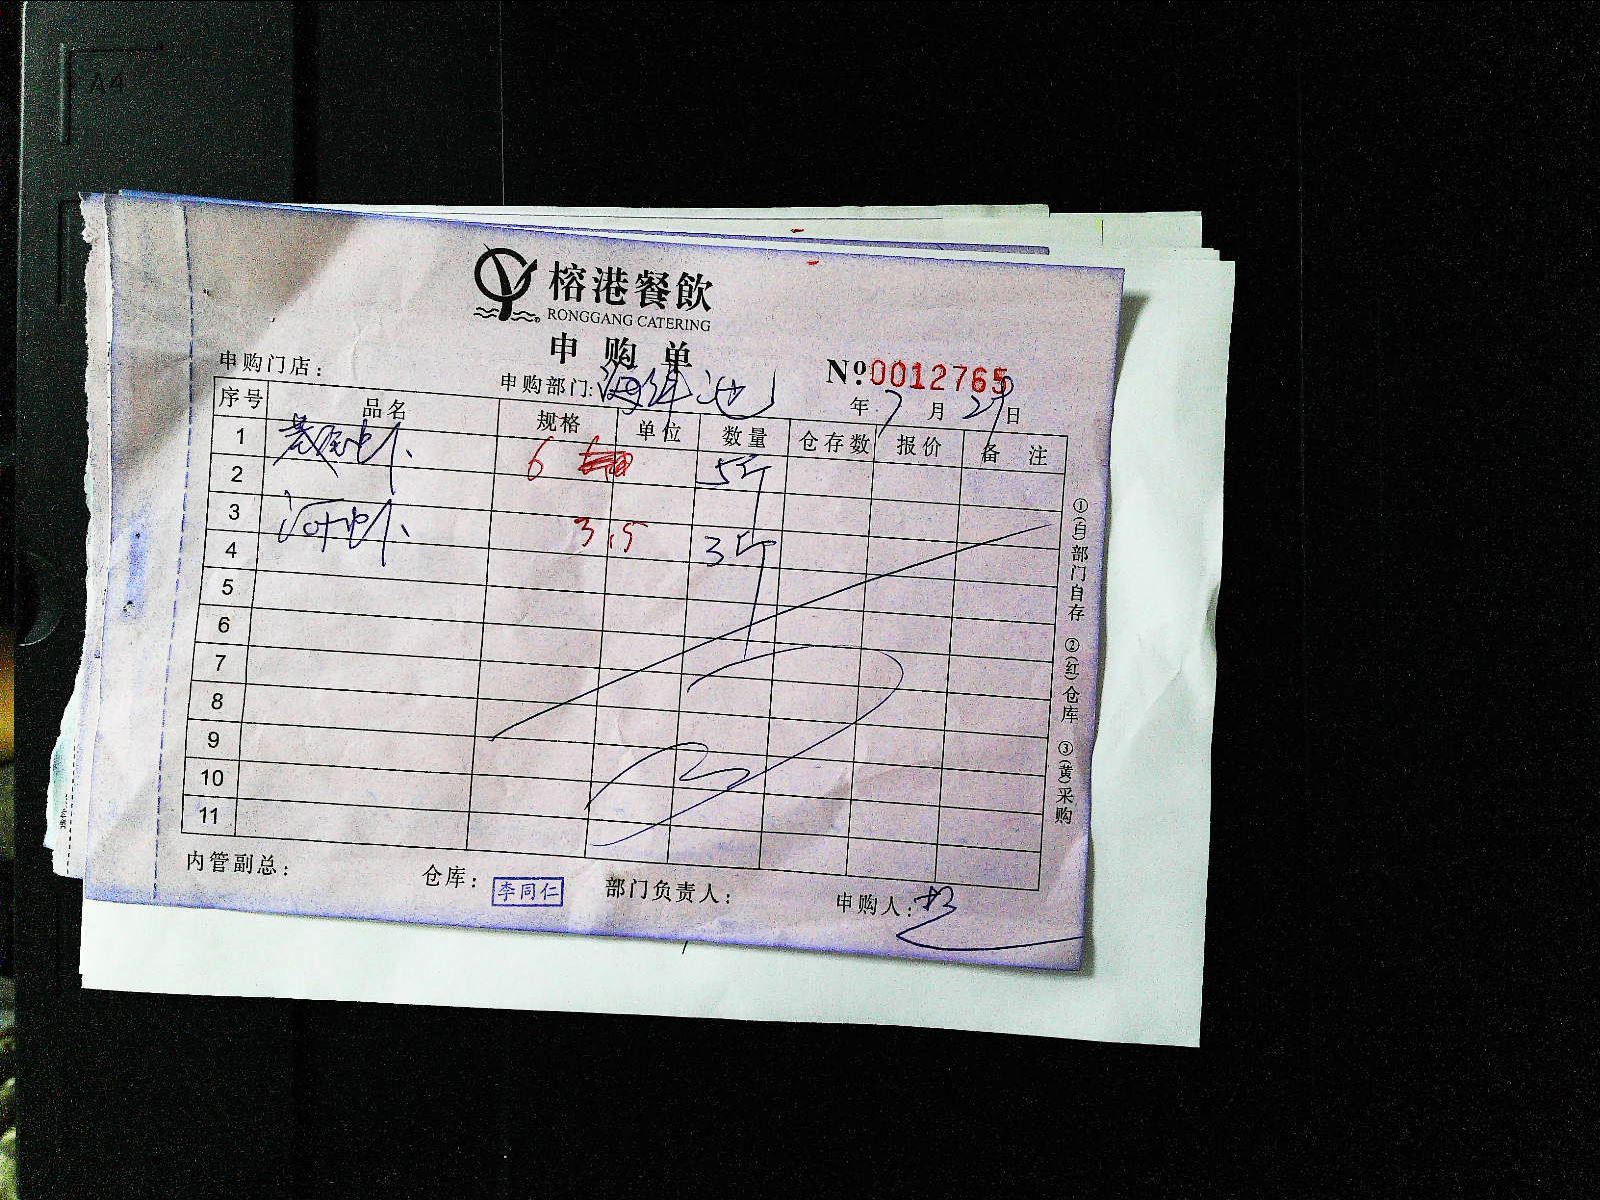 A4
榕港餐飲
RONGGANG CATERING
申购单
申购门店： 申购部门: 海鲜池 Nº0012765
年 7 月 29 日
序号 品名 规格 单位 数量 仓存数 报价 备注
1
6 5斤
2
3
河虾 3.5 3斤
4
5
6
7
8
9
10
11
①(白)部门自存 ②(红)仓库 ③(黄)采购
内管副总： 仓库： 李同仁 部门负责人： 申购人：